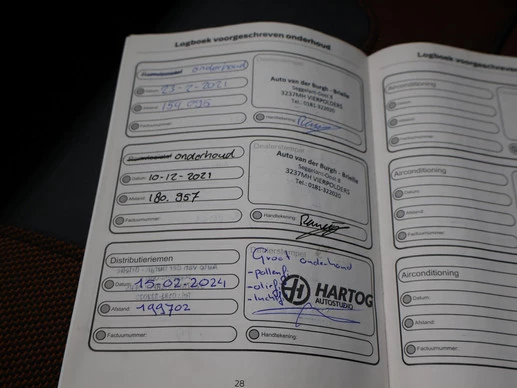 Logboek voorgeschreven onderhoud
onderhoud
Datum: 23-2-2021
Afstand: 154.095
Factuurnummer:
Auto van der Burgh - Brielle
Seggelant-Oost 8
3237MH VIERPOLDERS
Tel.: 0181-322020
Handtekening:
onderhoud
Datum: 10-12-2021
Afstand: 180.957
Factuurnummer:
Dealerstempel
Auto van der Burgh - Brielle
Seggelant-Oost 8
3237MH VIERPOLDERS
Tel.: 0181-322020
Handtekening:
Distributieriemen
Datum: 15-02-2024
Afstand: 199702
Factuurnummer:
Groot onderhoud
-pollenf
-olief
-luchtf
HARTOG
AUTOSTUDIO
Handtekening:
28
Logboek voorgeschreven onderh
Airconditioning
Datum:
Afstand:
Factuurnummer:
Airconditioning
Datum:
Afstand:
Factuurnummer:
Airconditioning
Datum:
Afstand:
Factuurnummer: